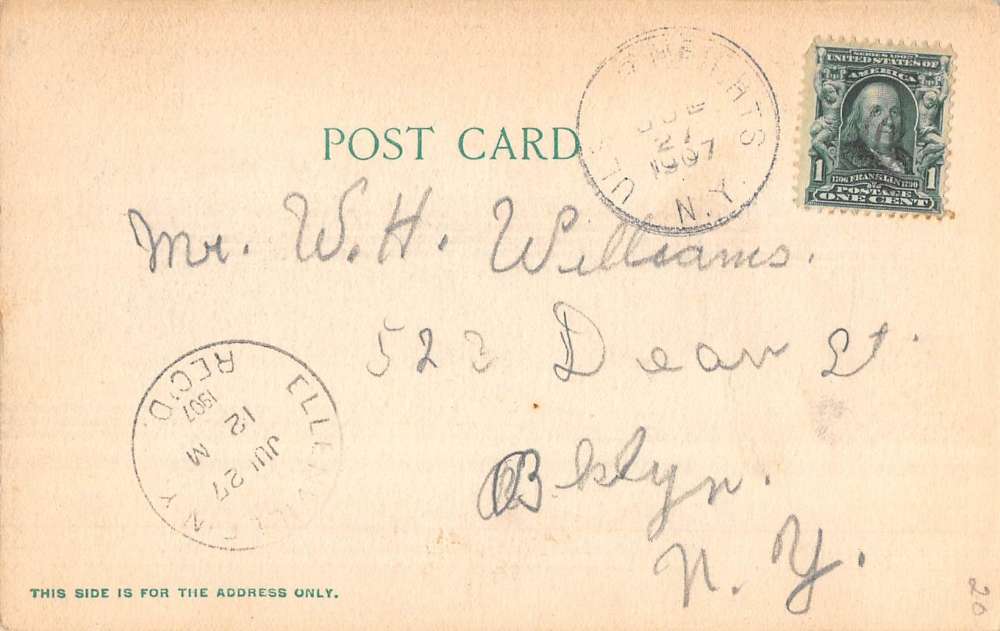 POST CARD
N.Y.
27
1907
SERIES 1902
UNITED STATES OF
AMERICA
1 1
1706 FRANKLIN 1790
POSTAGE
ONE CENT
Mr. W. H. Williams.
523 Dean St.
Bklyn.
N. Y.
REC'D.
1907
12 M
JUL 27
N.Y.
THIS SIDE IS FOR THE ADDRESS ONLY.
20